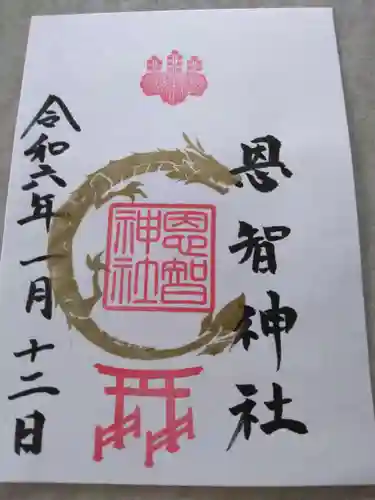 恩智神社
恩智神社
令和六年一月十二日